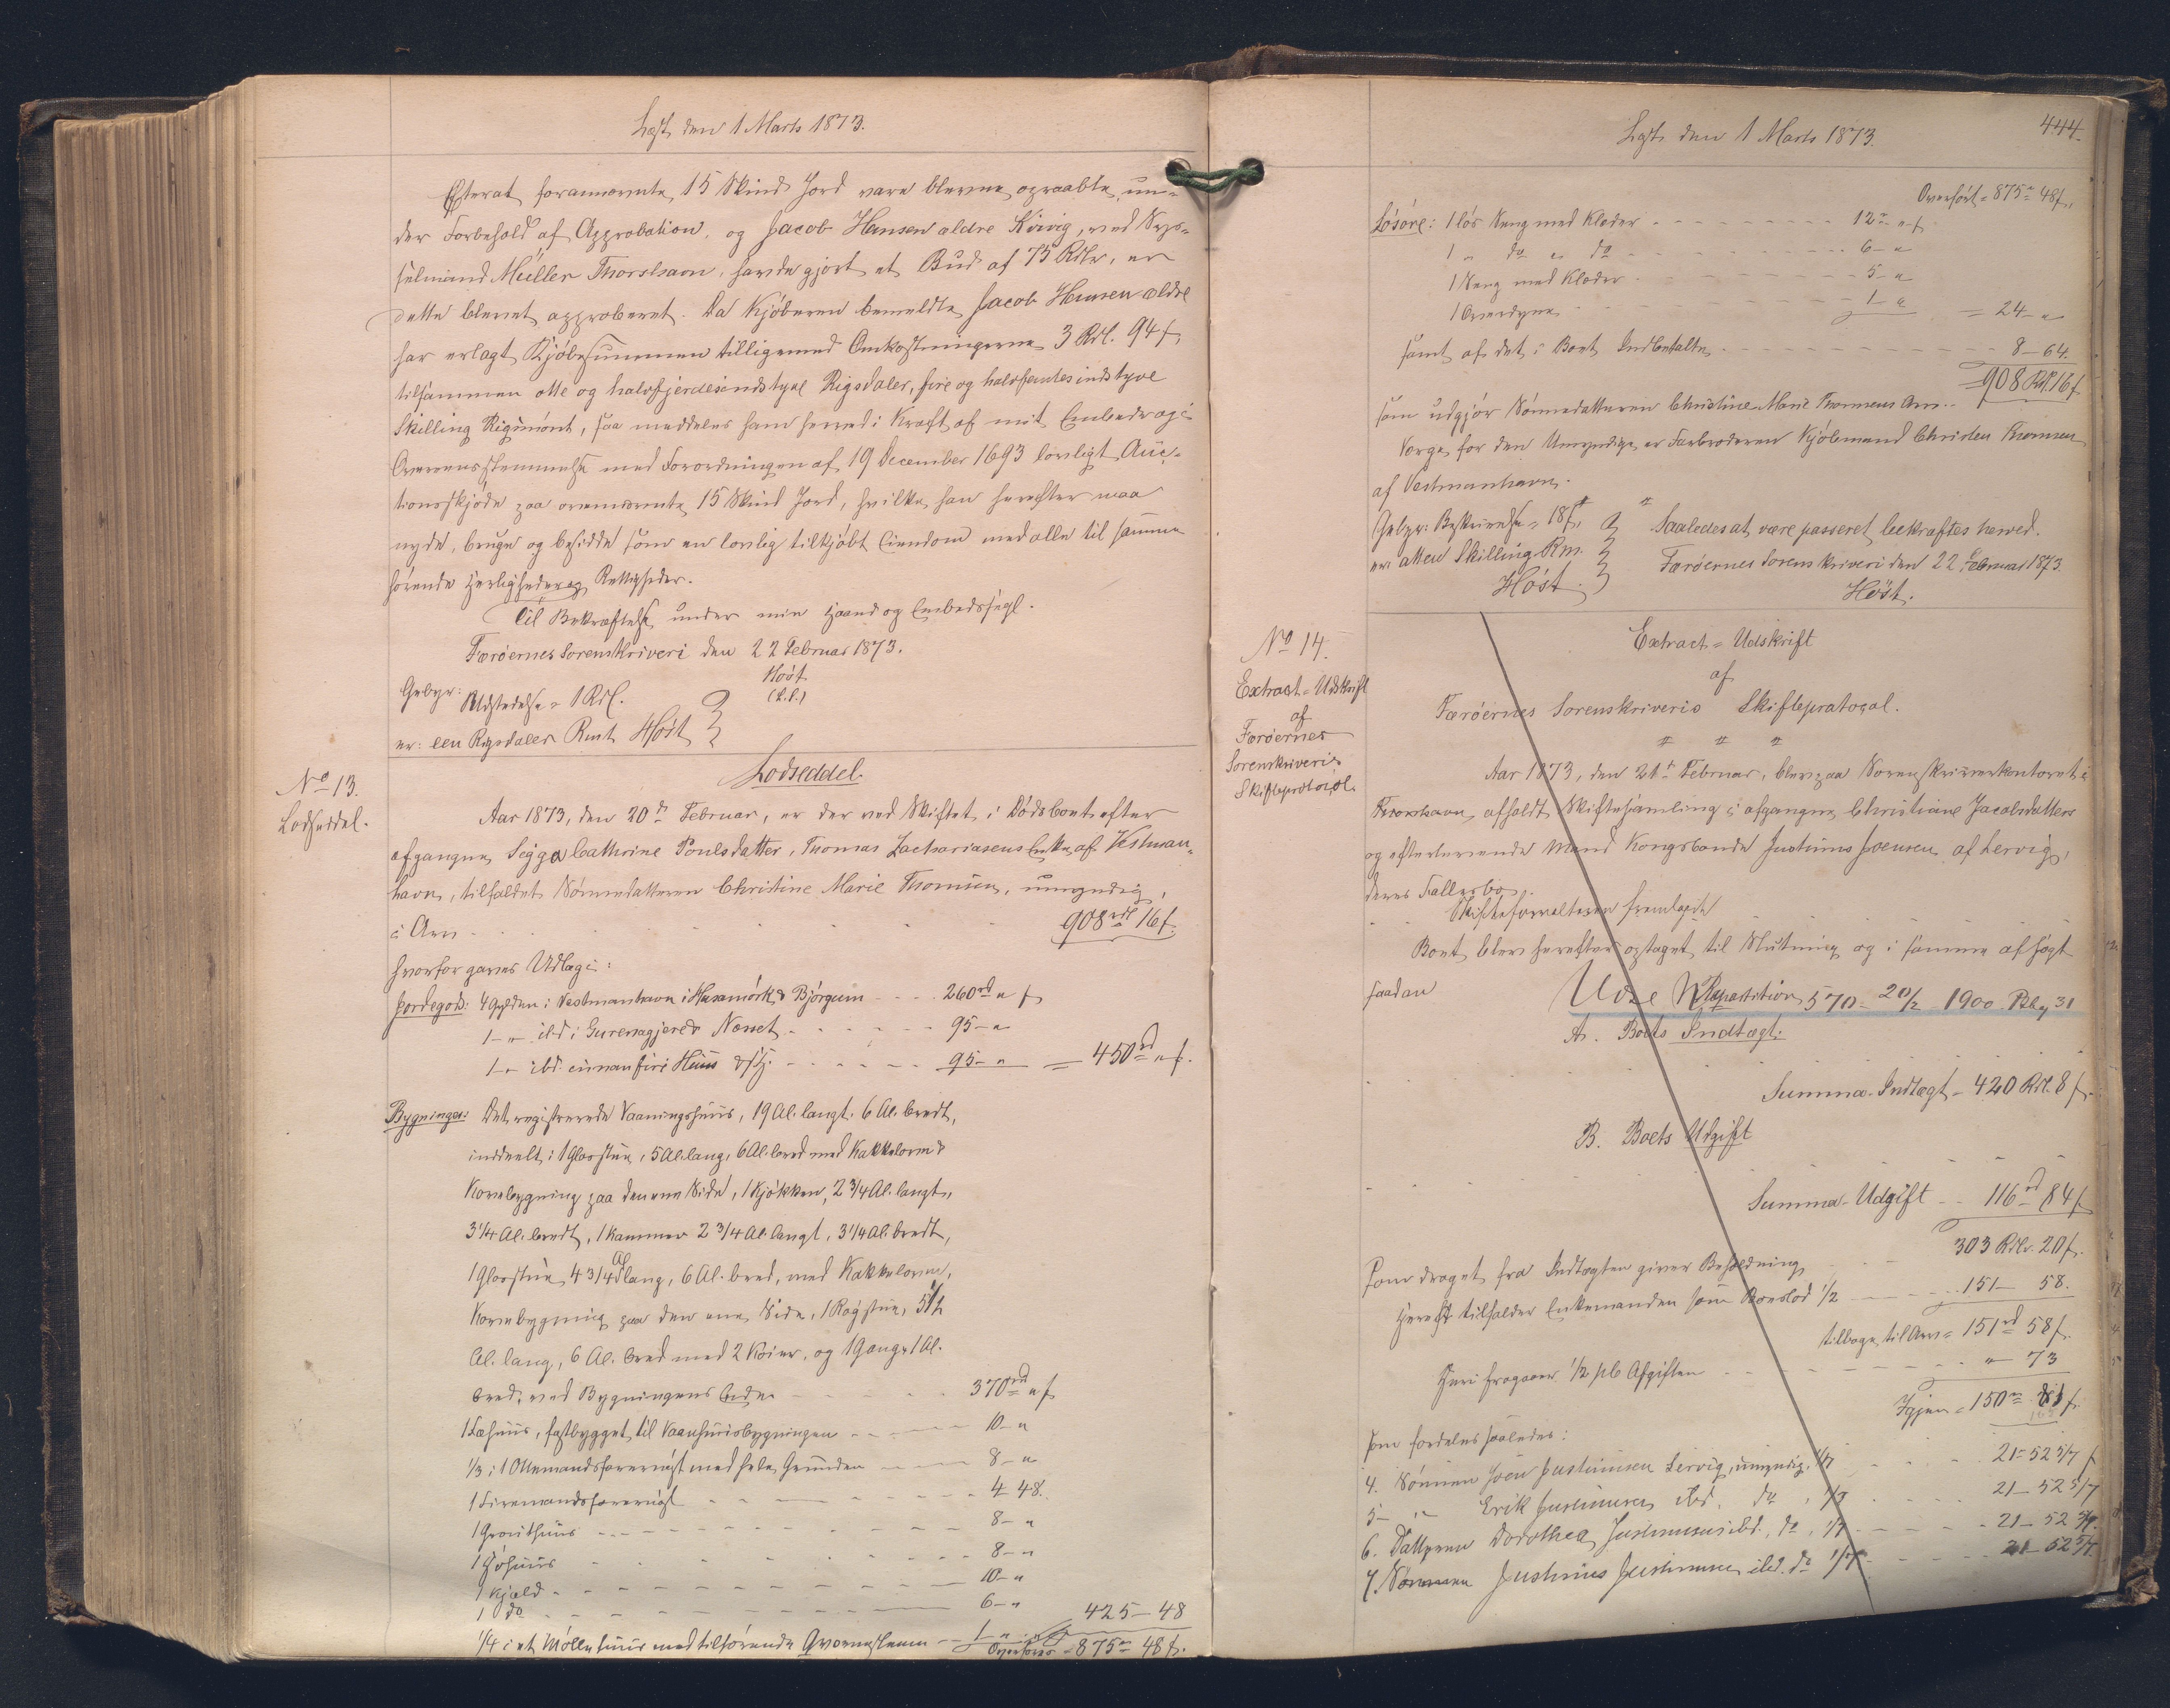 Læst den 1 Marts 1873.
Efterat forannævnte 15 Skind Jord vare blevne opraabte un-
der Forbehold af Approbation, og Jacob Hansen ældre Kvivig, ved Sys-
selmand Müller Thorshavn, havde gjort et Bud af 75 Rdlr, er
dette blevet approberet. Da Kjøberen bemeldte Jacob Hansen ældre
har erlagt Kjøbesummen tilligemed Omkostningerne 3 Rdl. 94 ß
tilsammen otte og halvfjerdesindstyve Rigsdaler, fire og halvfemtesindstyve
Skilling Rigsmønt, saa meddeles ham herved i Kraft af mit Embede og i
Overensstemmelse med Forordningen af 19 December 1693 lovligt Auc-
tionsskjøde paa ovennævnte 15 Skind Jord, hvilke han herefter maa
nyde, bruge og besidde som en lovlig tilkjøbt Eiendom med alle til samme
hørende Herligheder og Rettigheder.
Til Bekræftelse under min Haand og Embedssegl.
Færøernes Sorenskriveri den 22 Februar 1873.
Høst
(L.S.)
Gebyr: Udstedelse = 1 Rdl.
er: een Rigsdaler Rmt Høst
No 13.
Lodseddel.
Lodseddel.
Aar 1873, den 20de Februar, er der ved Skiftet i Dødsboet efter
afgangne Sigga Cathrine Poulsdatter, Thomas Zachariasens Enke af Vestman-
havn, tilfaldet Sønnedatteren Christine Marie Thomsen, umyndig,
i Arv 908 rdl 16 ß.
hvorfor gaves Udlæg i:
Jordegods: 4 Gylden i Vestmanhavn i Husamörk & Björgum 260 rd " ß
1 - " ibd i Gureragjerde Næset 95 - "
1 - " ibd innan firi Huus 95 - " = 450 rd " ß.
Bygninger: Det registrerede Vaaningshuus, 19 Al. langt. 6 Al. bredt,
inddeelt i 1 Glasstue, 5 Al. lang, 6 Al. bred med Kakkelovn &
Kovebygning paa den ene Side, 1 Kjøkken, 2 3/4 Al. langt,
3 1/4 Al. bredt, 1 Kammer 2 3/4 Al. langt, 3 1/4 Al. bredt,
1 Glasstue 4 3/4 Al lang, 6 Al. bred, med Kakkelovn,
Kovebygning paa den ene Side, 1 Røgstue, 5 1/2
Al. lang, 6 Al. bred med 2 Køier, og 1 Gang 1 Al.
bred, ved Bygningens Ende 370 rd " ß
1 Fæhuus, fastbygget til Vaanhuusbygningen 10 - "
1/3 i 1 Ottemandsfarernøst med hele Grunden 8 - "
1 Firemandsfarernøst 4 48.
1 Grovthuus 8 - "
1 Qvöhuus 8 - "
1 Kjæld 10 - "
1 do 6 - "
1/4 i et Möllehuus med tilhørende Qværnsteen 1 - " 425 - 48
Overføres = 875 - 48 ß.
Læst den 1 Marts 1873.
444
Overført = 875 - 48 ß.
Løsøre: 1 løs Seng med Klæder 12 - " ß
1 " do " do 6 - "
1 Seng med Klæder 5 - "
1 Overdyne 1 - " = 24 - "
samt af det i Boet Indbetalte 8 - 64.
= 908 Rdl. 16 ß
som udgjør Sønnedatteren Christine Marie Thomsens Arv.
Værge for den Umyndige er Farbroderen Kjøbmand Christen Thomsen
af Vestmanhavn.
Gebyr: Beskrivelse = 18 ß
er: atten Skilling Rm.
Høst.
Saaledes at være passeret bekræftes herved.
Færøernes Sorenskriveri den 22 Februar 1873.
Høst.
No 14.
Extract-Udskrift
af
Færøernes
Sorenskriveris
Skifteprotocol.
Extract-Udskrift
af
Færøernes Sorenskriveris Skifteprotocol.
Aar 1873, den 21de Februar, blev paa Sorenskriverkontoret i
Thorshavn afholdt Skiftesamling i afgangne Christiane Jacobsdatters
og efterlevende Mand Kongsbonde Justinus Joensen af Lervig,
deres Fællesbo.
Skifteforvalteren fremlagde
Boet blev herefter optaget til Slutning og i samme afsagt
saadan
Repartition 570 - 20/2 1900 Pkg 31
A. Boets Indtægt.
Summa-Indtægt = 420 Rdl. 8 ß
B. Boets Udgift
Summa-Udgift 116 rd 84 ß
som draget fra Indtægten giver Beholdning 303 Rdlr. 20 ß.
Heraf tilfalder Enkemanden som Boeslod 1/2 151 - 58.
tilbage til Arv = 151 rd 58 ß.
Heri fragaaer 1/2 pCt Afgiften " - 73
Igjen = 150
som fordeles saaledes:
4. Sønnen Joen Justinussen Lervig, umyndig, 1/7 21 - 52 5/7 ß
5 - " Erik Justinussen ibd. do, 1/7 21 - 52 5/7
6. Datteren Dorothea Justinusen ibd, do, 1/7 21 - 52 5/7.
7. Sønnen Justinus Justinussen ibd. do 1/7 21 - 52 5/7.